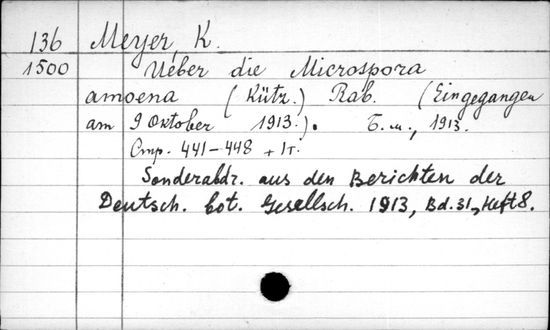 136 Meyer, K.
1500 Ueber die Microspora
amoena (Kütz.) Rab. (Eingegangen
am 9 Oktober 1913.). Б. м., 1913.
Стр. 441-448 + 1т.
Sonderabdr. aus den Berichten der
Deutsch. bot. Gesellsch. 1913, Bd. 31, Heft 8.